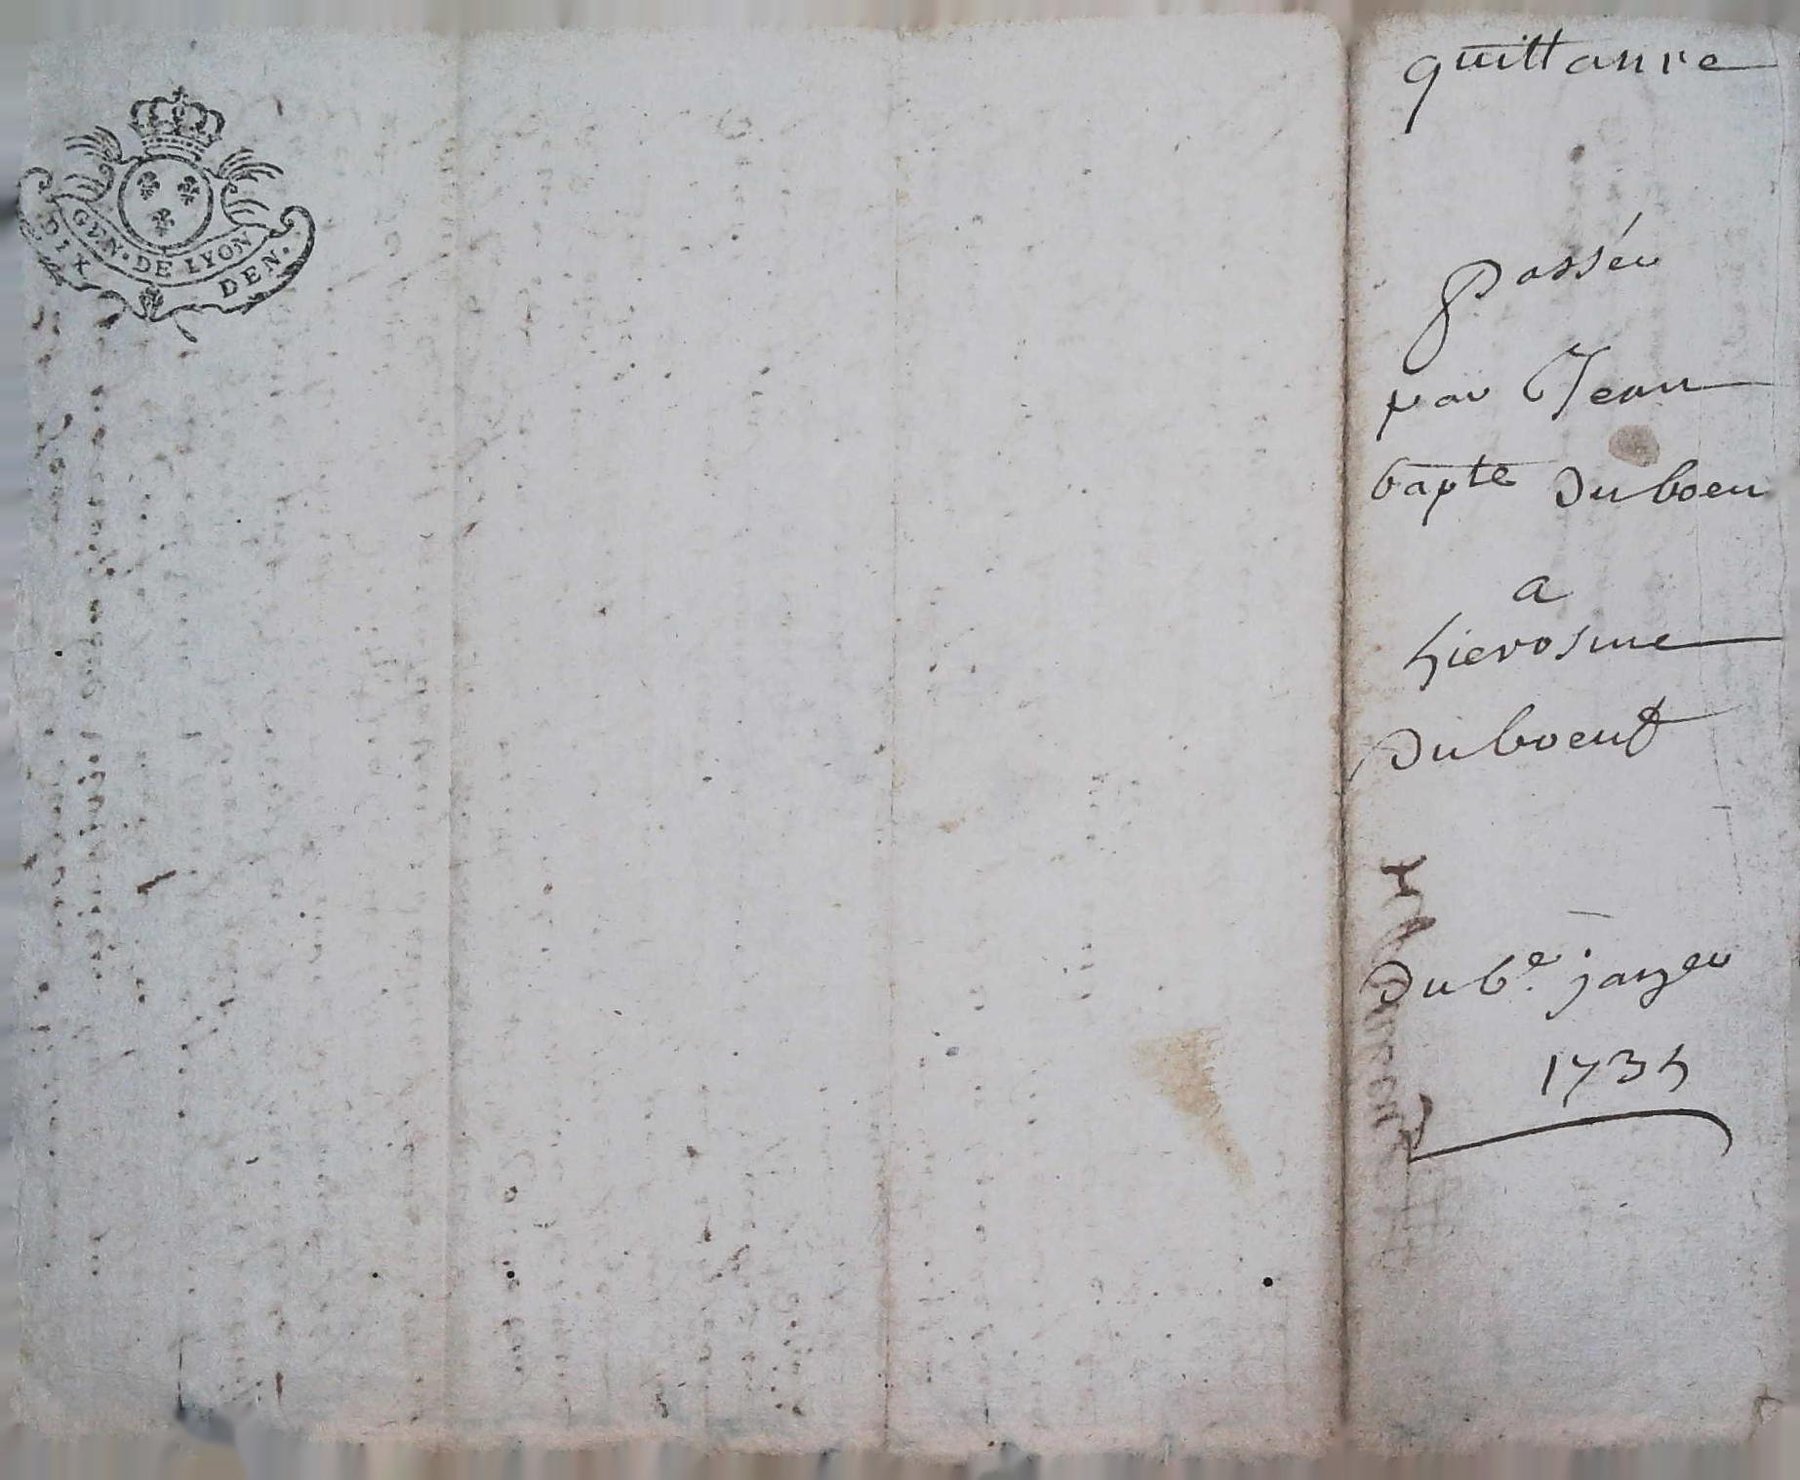 GEN. DE LYON
DIX DEN.
quittance
passée
par Jean
bapte duboeu
a
hierosme
duboeuf
du 6e. janer
1734